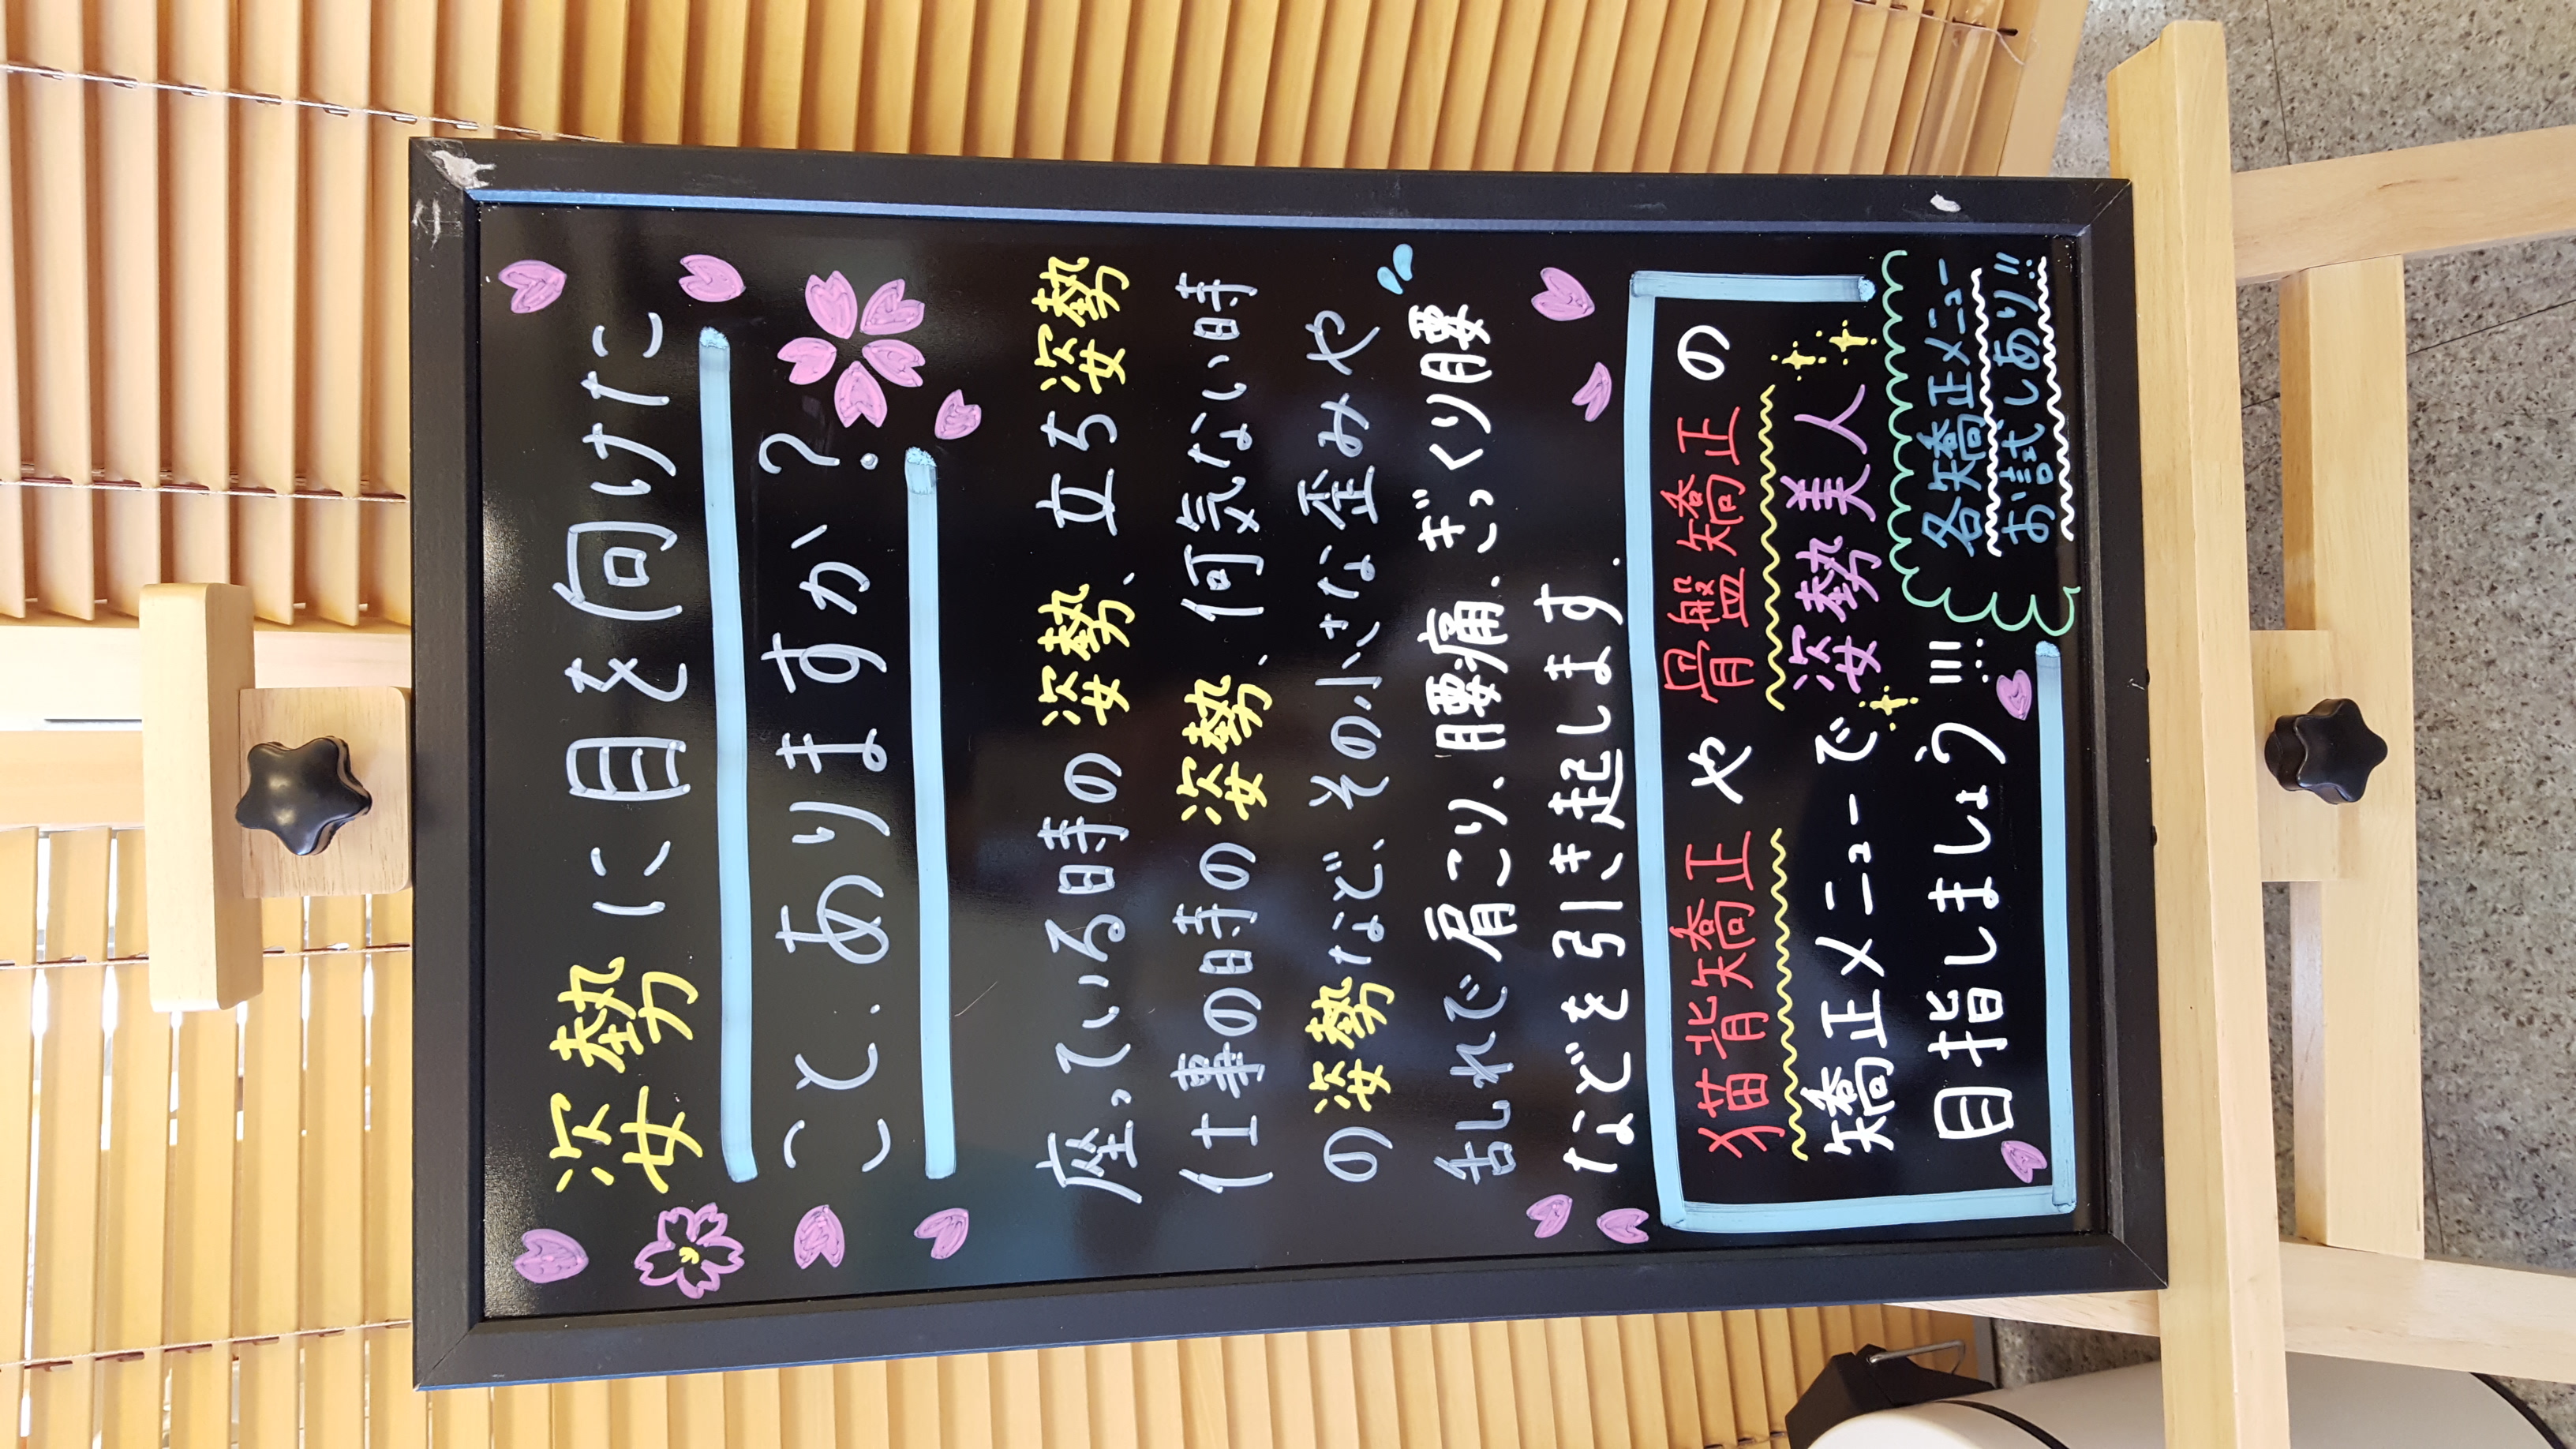 姿勢に目を向けた
こと、ありますか？
座っている時の姿勢、立ち姿勢
仕事の時の姿勢、何気ない時
の姿勢など、その小さな歪みや
乱れで肩こり、腰痛、ぎっくり腰
などを引き起します.
猫背矯正や骨盤矯正の
矯正メニューで姿勢美人
目指しましょう!!!!
各矯正メニュー
お試しあり!!